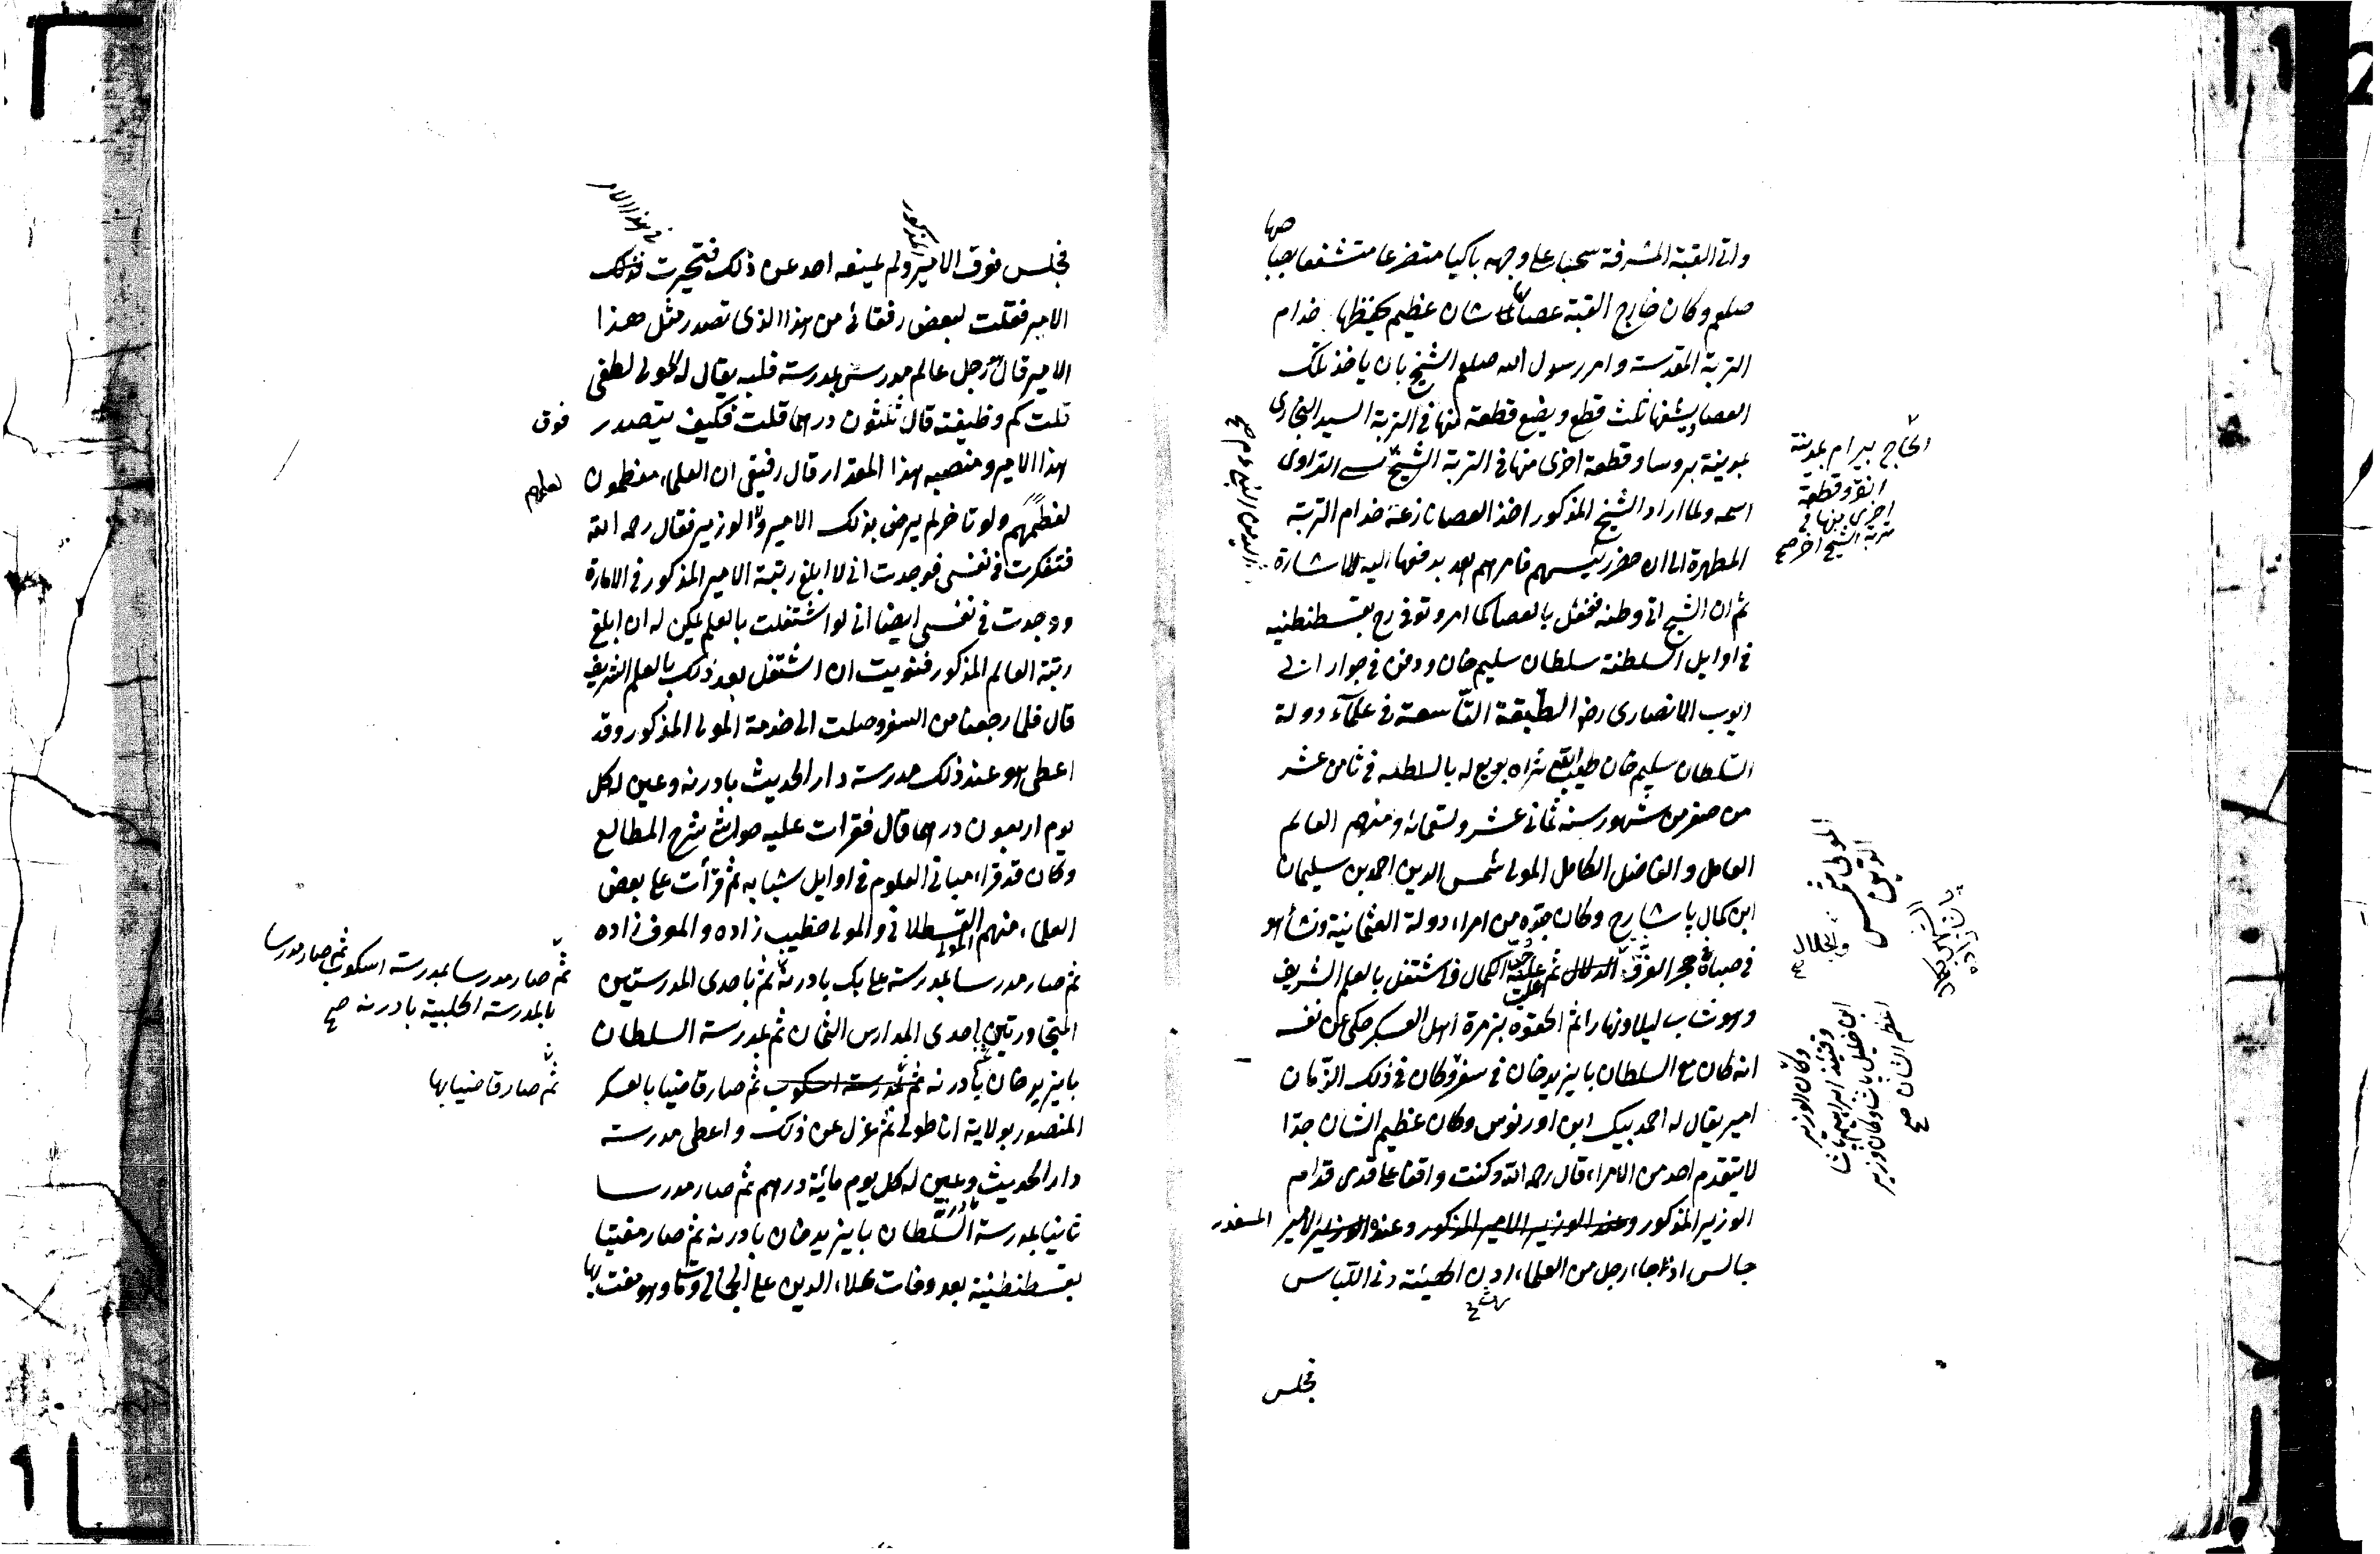 واتى القبة المشرفة سحبا على وجهه باكيا متضرعا متشفعا بصاحبها
صلعم وكان خارج القبة عصا لها شان عظيم يحفظها خدام
التربة المقدسة وامر رسول الله صلعم الشيخ بان ياخذ تلك
العصا ويشقها ثلث قطع ويضع قطعة منها فى التربة السيد البخارى
بمدينة بروسا وقطعة اخرى منها فى التربة الشيخ
اسمه ولما اراد الشيخ المذكور اخذ العصا نازعه خدام التربة
المطهرة الى ان حضر رئيسهم فامرهم بعد بدفعها اليه للاشارة
ثم ان الشيخ اتى وطنه ففعل بالعصا كما امر وتوفى رح بقسطنطنيه
فى اوايل السلطنة سلطان سليم خان ودفن فى جوار ابى
ايوب الانصارى رضه الطبقة التاسعة فى علماء دولة
السلطان سليم خان طيب الله ثراه بويع له بالسلطنه فى ثامن عشر
من صفر من شهور سنه ثمانى عشر وتسعمائه ومنهم العالم
العامل والفاضل الكامل المولى شمس الدين احمد بن سليمان
ابن كمال پاشا رح وكان جده من امراء دولة العثمانية ونشأ هو
فى صباه فى حجر العز والدلال ثم غلب عليه حب الكمال فاشتغل بالعلم الشريف
وهو شاب ليلا ونهارا ثم الحقوه بزمرة اهل العسكر حكى عن نفسه
انه كان مع السلطان بايزيد خان فى سفر وكان فى ذلك الزمان
امير يقال له احمد بيك ابن اورنوس وكان عظيم الشان جدا
لا يتقدم احد من الامراء قال رحمه الله وكنت واقفا على قدمى قدام
الوزير المذكور وعند الوزير الامير المذكور وعنده الامير المسفور
جالس اذ جاء رجل من العلماء الهيئة دنى اللباس
فجلس
الحاج بيرام بمدينة
انقره وقطعة
اخرى منها فى
تربة الشيخ اخر صح
المولى شمس
الدين
وكان الوزير
وقتئذ ابراهيم پاشا
ابن خليل پاشا وكان وزير
عظيم الشان صح
فجلس فوق الامير المذكور ولم يمنعه احد عن ذلك فتحيرت فى هذا الامر
الامير فقلت لبعض رفقائى من هذا الذى تصدر مثل هذا
الامير قال رجل عالم مدرس بمدرسة فلبه يقال له المولى لطفى
قلت كم وظيفته قال ثلثون درهما قلت فكيف يتصدر فوق
هذا الامير ومنصبه هذا المقدار قال رفيقى ان العلماء معظمون
لعلمهم ولو تاخر لم يرض بذلك الامير ولا الوزير فقال رحمه الله
فتفكرت فى نفسى فوجدت انى لا ابلغ رتبة الامير المذكور فى الامارة
ووجدت فى نفسى ايضا انى لو اشتغلت بالعلم يمكن له ان ابلغ
رتبة العالم المذكور فنويت ان اشتغل بعد ذلك بالعلم الشريف
قال فلما رجعنا من السفر وصلت الى خدمة المولى المذكور وقد
اعطى هو عند ذلك مدرسة دار الحديث بادرنه وعين له كل
يوم اربعون درهما قال فقرات عليه حواشى شرح المطالع
وكان قد قراء مبانى العلوم فى اوايل شبابه ثم قرأت على بعض
العلماء منهم القسطلانى والمولى خطيب زاده والمولى معرف زاده
ثم صار مدرسا بمدرسة على بك بادرنه ثم باحدى المدرستين
المتجاورتين باحدى المدارس الثمان ثم بمدرسة السلطان
بايزيد خان بادرنه ثم بمدرسة اسكوب ثم صار قاضيا بالعسكر
المنصور بولاية اناطولى ثم عزل عن ذلك واعطى مدرسة
دار الحديث بادرنه وعين له كل يوم مائة درهم ثم صار مدرسا
ثانيا بمدرسة السلطان بايزيد خان بادرنه ثم صار مفتيا
بقسطنطنية بعد وفات علاء الدين على الجمالى ومات وهو مفت بها
لعلمهم
ثم صار مدرسا بمدرسة اسكوب ثم صار مدرسا
بالمدرسة الحلبية بادرنه صح
ثم صار قاضيا بها